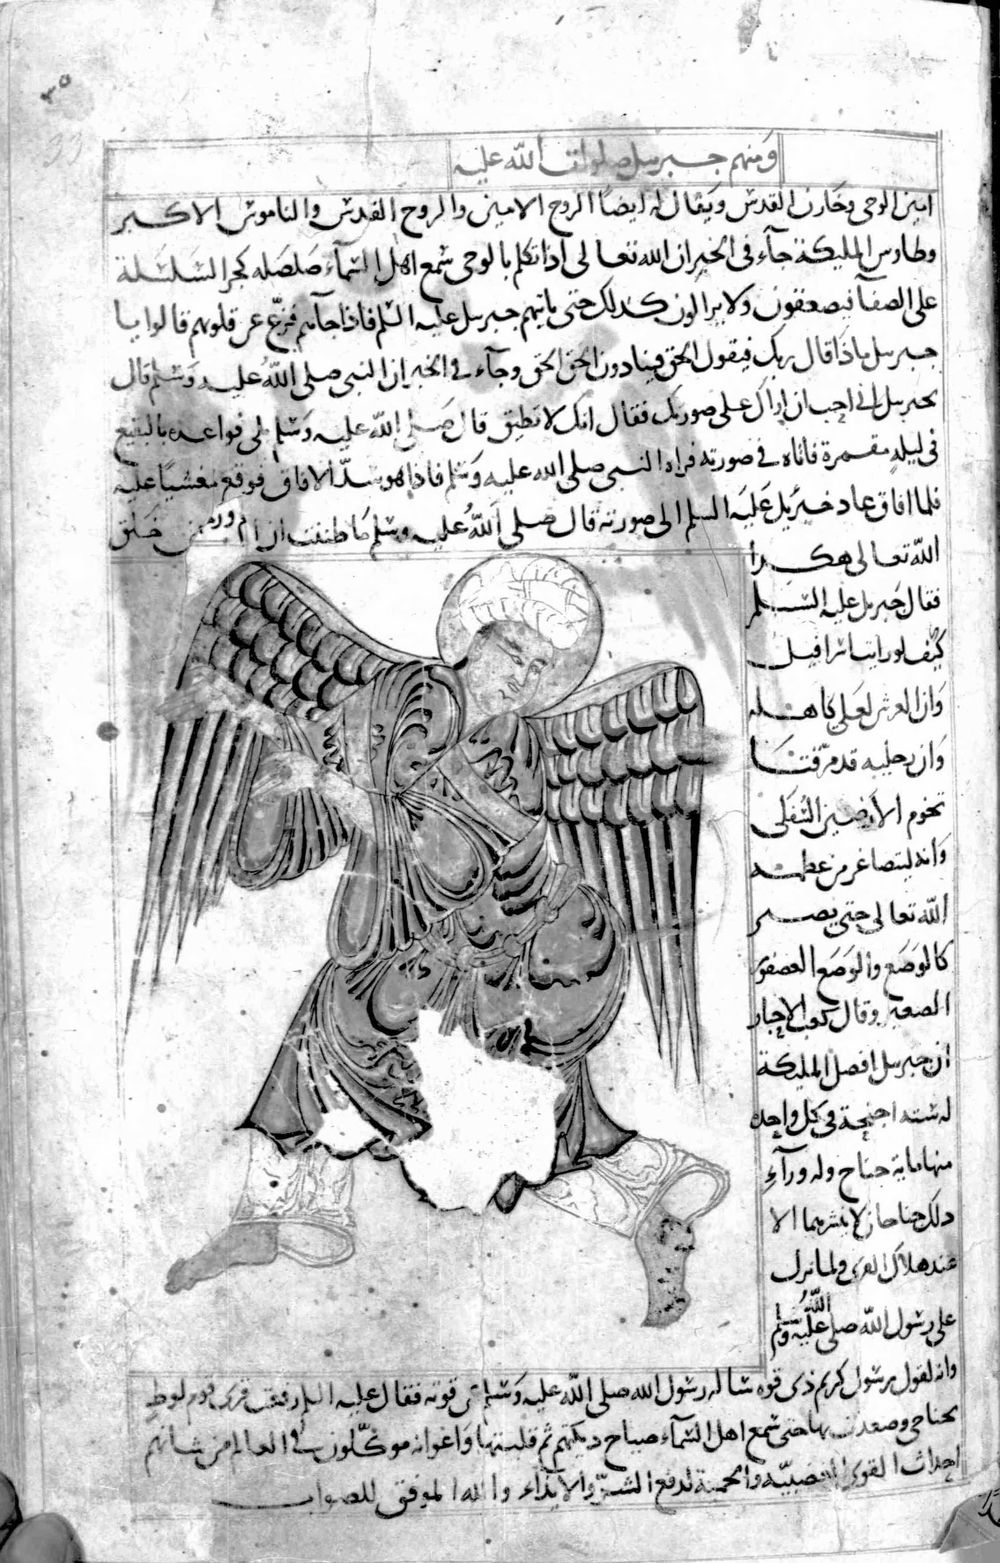 ٣٥
33
ومنهم جبريل صلوات الله عليه
امين الوحى وخازن القدس ويقال له ايضاً الروح الامين والروح القدس والناموس الاكبر
وطاوس المليكة جآء فى الخبر ان الله تعالى اذا تكلم بالوحى سمع اهل السمآء صلصله كجر السلسلة
على الصفا فيصعقون ولا يزالون كذلك حتى ياتيهم جبريل عليه السلم فاذا جآهم فزع عن قلوبهم قالوا يا
جبريل ماذا قال ربك فيقول الحق فينادون الحق الحق وجآء فى الخبر ان النبى صلى الله عليه وسلم قال
لجبريل انى احب ان اراك على صورتك فقال انك لا تطيق قال صلى الله عليه وسلم بلى فواعده بالبقيع
فى ليله مقمرة فاتاه فى صورته فراه النبى صلى الله عليه وسلم فاذا هو سد الافاق فوقع مغشيا عليه
فلما افاق عاد جبريل عليه السلم الى صورته قال صلى الله عليه وسلم ما ظننت ان من خلق
الله تعالى هكذا
فقال جبريل عليه السلم
كيف لو رايت اسرافيل
وان العرش لعلى كاهله
وان رجليه قد مرقتا
تخوم الارضين السفلى
وانه ليتصاغر من عظمة
الله تعالى حتى يصير
كالوصع والوصع العصفور
الصغير وقال كعب الاحبار
ان جبريل افضل المليكة
له ستة اجنحة فى كل واحده
منها ماية جناح وله ورآء
ذلك جناحان لا ينشرهما الا
عند هلاك القرى ولما نزل
على رسول الله صلى الله عليه وسلم
وانه لقول رسول كريم ذى قوه ساله رسول الله صلى الله عليه وسلم عن قوته فقال عليه السلم رفعت قرى قوم لوط
بجناحى وصعدت بها حتى سمع اهل السمآء صياح ديكتهم ثم قلبتها واعوانه موكلون فى العالم من شانهم
احداث القوى الغضبيه والحمية لدفع الشر والايذاء والله الموفق للصواب